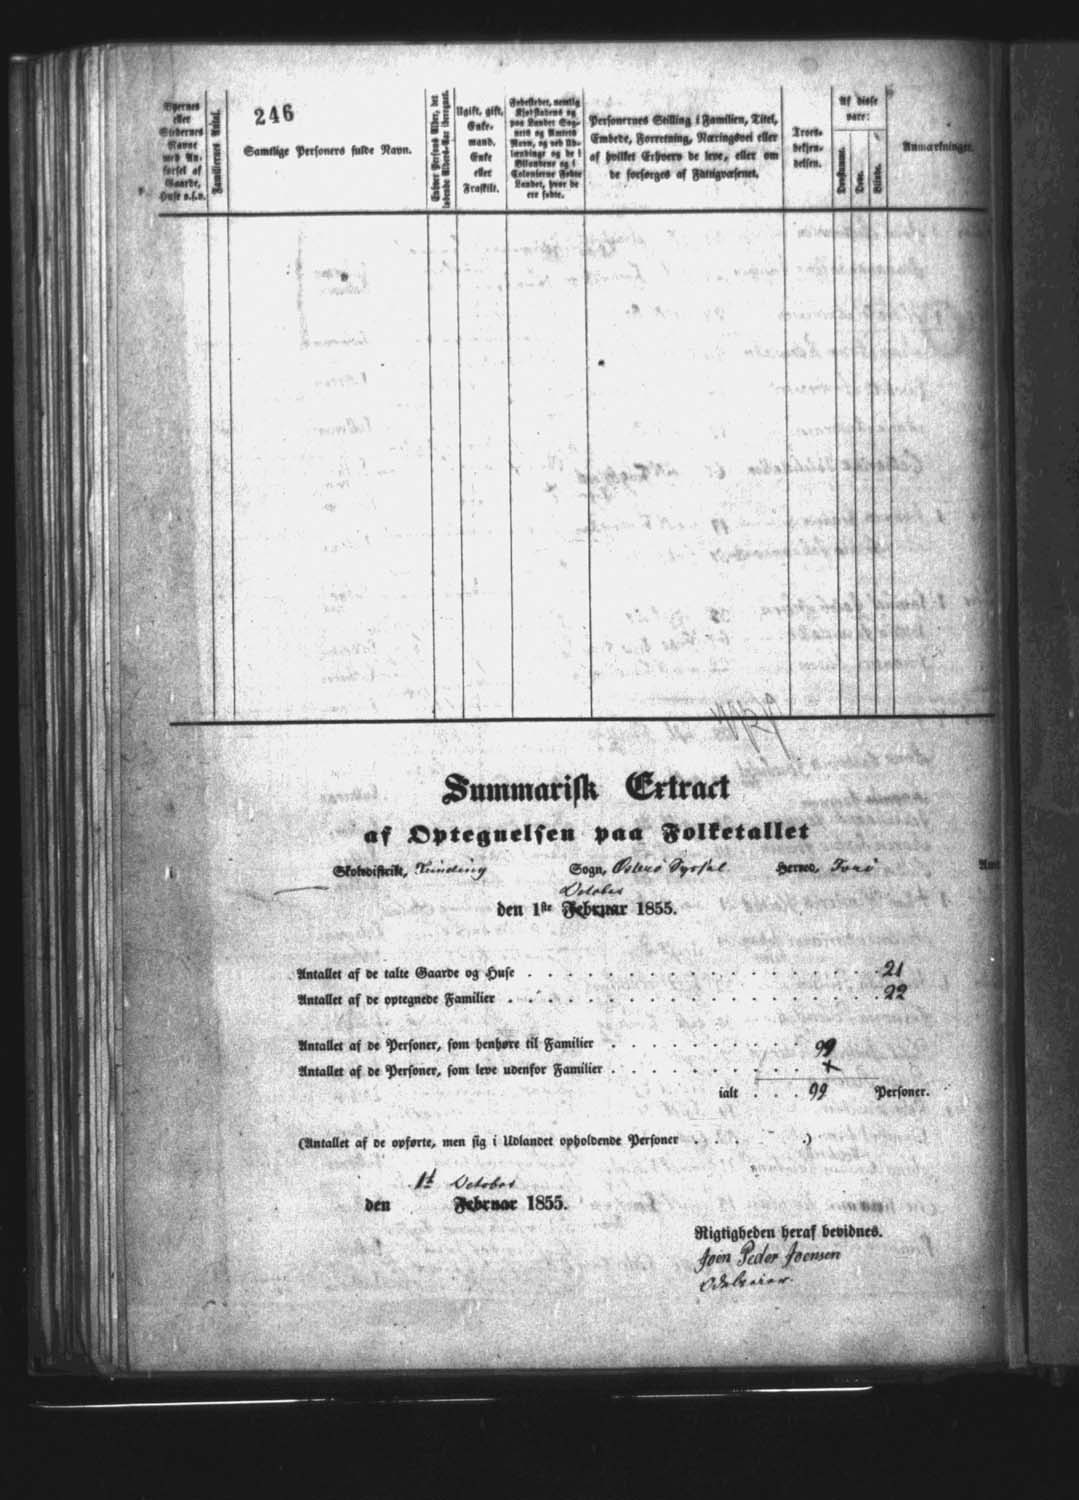 246
Byernes eller Stedernes Navne med Anførsel af Gaarde, Huse o.s.v.
Familiernes Antal.
Samtlige Personers fulde Navn.
Enhver Persons Alder, det løbende Alders-Aar iberegnet.
Ugift, gift, Enkemand, Enke eller Fraskilt.
Fødestedet, nemlig Kjøbstadens og paa Landet Sognets og Amtets Navn, og ved Udlændinge og de i Bilandene og i Colonierne Fødte Landet, hvor de ere fødte.
Personernes Stilling i Familien, Titel, Embede, Forretning, Næringsvei eller af hvilket Erhverv de leve, eller om de forsørges af Fattigvæsenet.
Troesbekjendelsen.
Af disse vare:
Døvstumme.
Døve.
Blinde.
Anmærkninger.
Summarisk Extract
af Optegnelsen paa Folketallet
Skoledistrikt, Sogn, Østerø Syssel Herred, Amt
October
den 1ste Februar 1855.
Antallet af de talte Gaarde og Huse . . . 21
Antallet af de optegnede Familier . . . 22
Antallet af de Personer, som henhøre til Familier . . . 99
Antallet af de Personer, som leve udenfor Familier . . . +
ialt . . . 99 Personer.
(Antallet af de opførte, men sig i Udlandet opholdende Personer . . . .)
1st October
den Februar 1855.
Rigtigheden heraf bevidnes.
Joen Peder Joensen